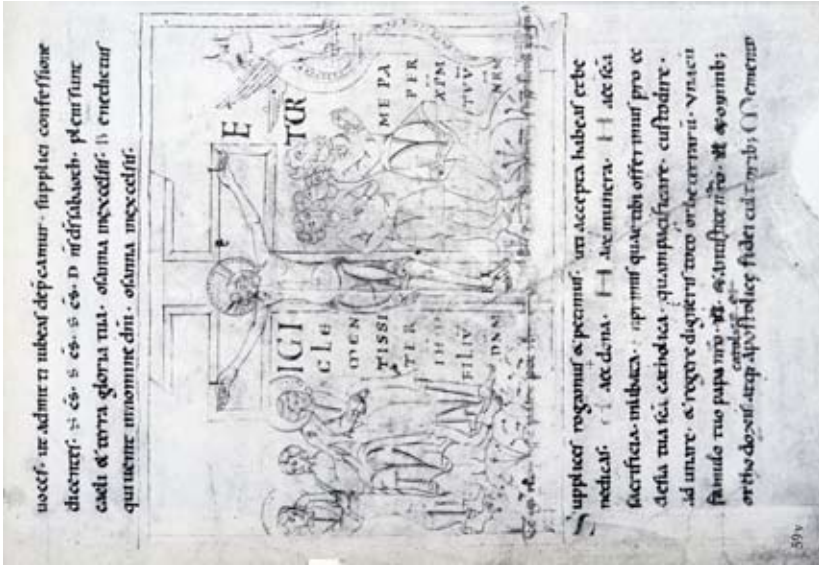 uoces· ut admitti iubeas dep̄camur· supplici confessione
dicentes· S c̄s· S c̄s· S c̄s· D n̄s d̄s sabaoth· pleni sunt
caeli & terra gloria tua· osanna inexcelsis· Benedictus
qui uenit innomine dn̄i· osanna inexcelsis·
E
IGI TUR
cle
MEN ME PA
TISSI PER
TER XPM
IHM TVV
FILIV NRM
DNM
Supplices rogamus & petimus· uti accepta habeas et be
nedicas· H aec dona· H aec munera· H aec sc̄a
sacrificia inlibata· Inprimis quae tibi offerimus pro ec
clesia tua sc̄a catholica· quam pacificare· custodire·
adunare· & regere digneris toto orbe terrarū· Vnacū
famulo tuo papa nr̄o· ill̄ & antistite nr̄o· ill̄ & omnib;
orthodoxis atq; apostolicę fidei cultorib; Memento
59v